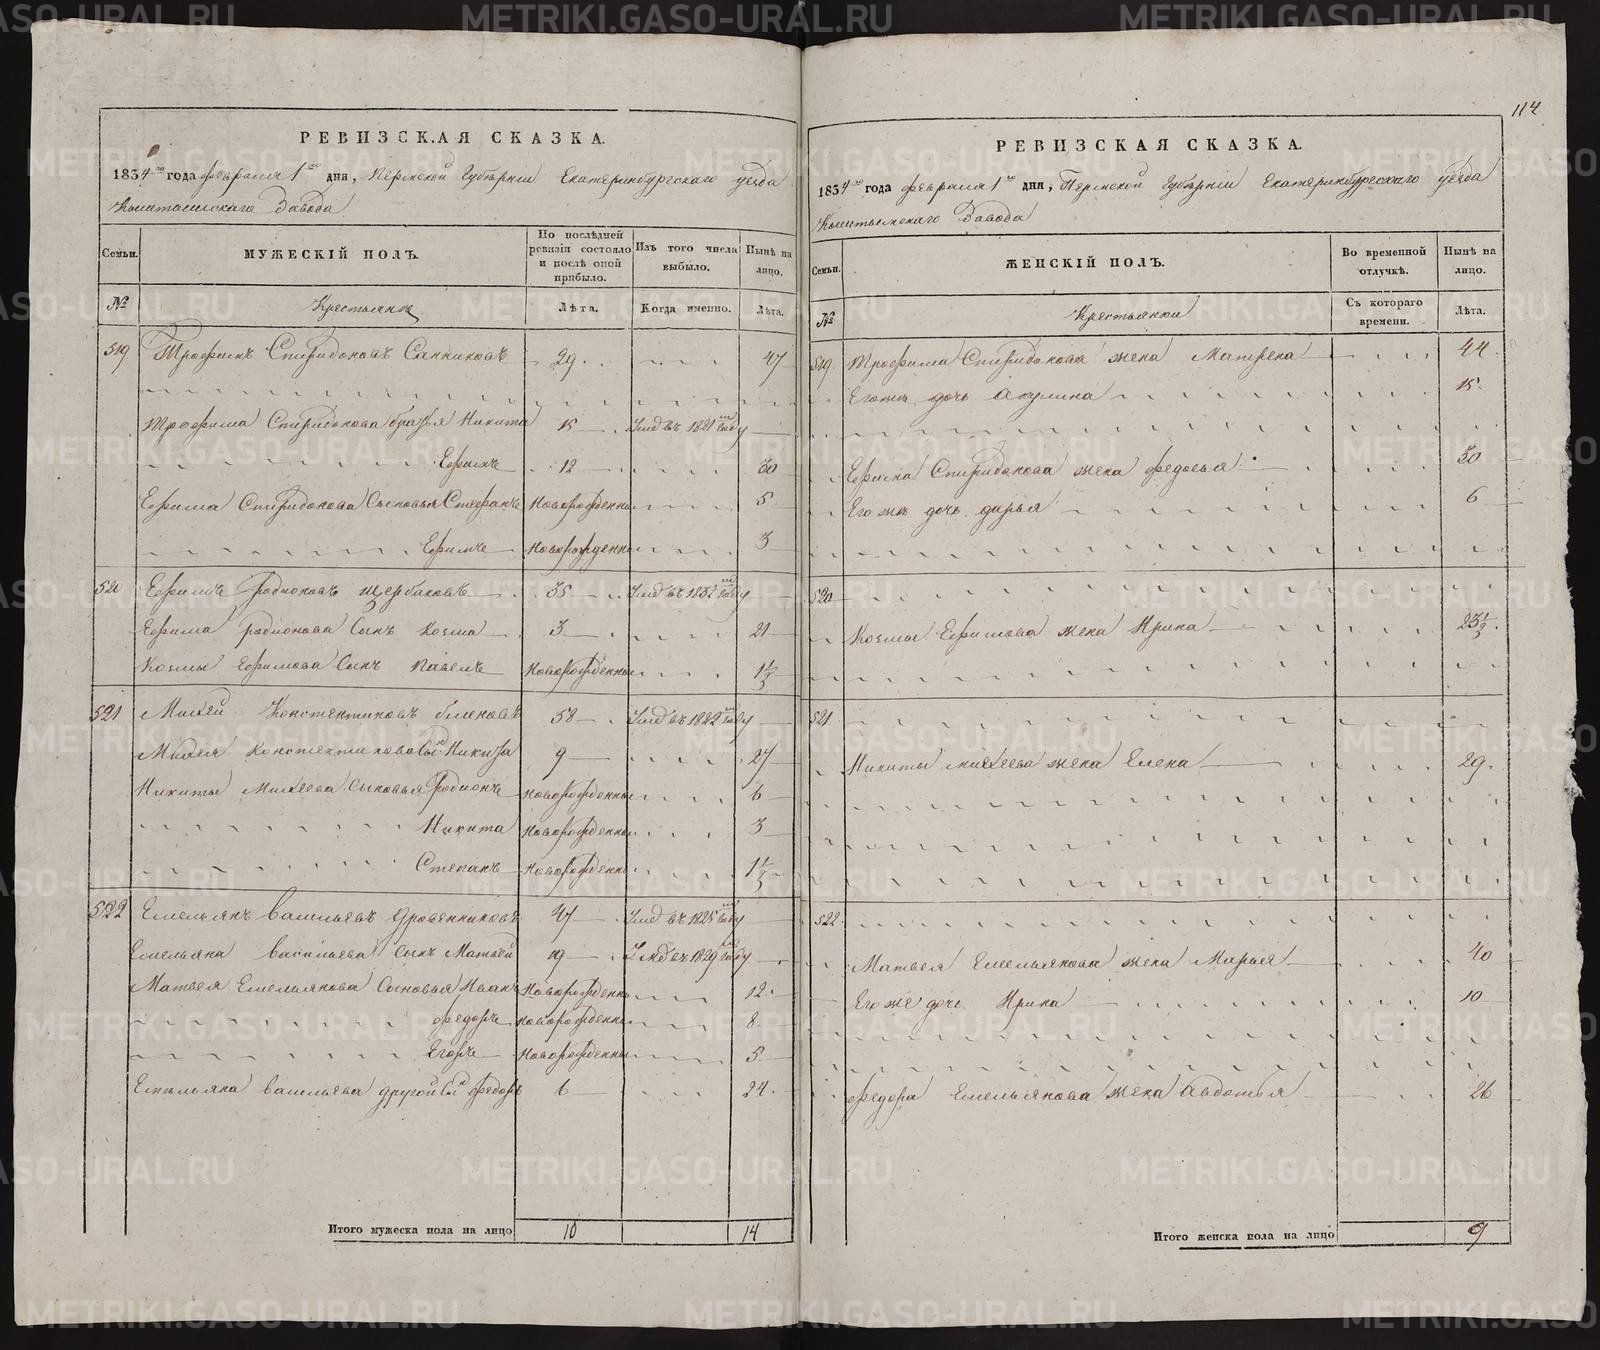 РЕВИЗСКАЯ СКАЗКА.
1834го года февраля 1го дня, Пермской Губерніи Екатеринбургскаго уезда
Завода
Семьи. МУЖЕСКІЙ ПОЛЪ. По послѣдней ревизіи состояло и послѣ оной прибыло. Изъ того числа выбыло. Нынѣ на лицо.
№ Крестьяне Лѣта. Когда именно. Лѣта.
519 Трофимъ Спиридоновъ Санниковъ 29 47
Трофима Спиридонова братья Никита 15 Умеръ въ 1821м году
Ефимъ 12 30
Ефима Спиридонова Сыновья Стефанъ Новорожденны 5
Ефимъ Новорожденны 3
520 Ефимъ Родионовъ Щербаковъ 35 Умеръ въ 1832м году
Ефима Родионова Сынъ Козма 3 21
Козмы Ефимова Сынъ Павелъ Новорожденны 1 1/3
521 Михей Констентиновъ 58 Умеръ въ 1822м году
Михея Констентинова Сынъ Никита 9 27
Никиты Михеева Сыновья Родионъ Новорожденны 6
Никита Новорожденны 3
Степанъ Новорожденны 1 1/3
522 Емельянъ Васильевъ Дровенниковъ 47 Умеръ въ 1825м году
Емельяна Васильева Сынъ Матвей 19 Умеръ въ 1829м году
Матвея Емельянова Сыновья Иванъ Новорожденны 12
Федоръ Новорожденны 8
Егоръ Новорожденны 5
Емельяна Васильева другой Сынъ Федоръ 6 24
Итого мужеска пола на лицо 10 14
114
РЕВИЗСКАЯ СКАЗКА.
1834го года февраля 1го дня, Пермской Губерніи Екатеринбургскаго уезда
Завода
Семьи. ЖЕНСКІЙ ПОЛЪ. Во временной отлучкѣ. Нынѣ на лицо.
№ Крестьянки Съ котораго времени. Лѣта.
519 Трофима Спиридонова жена Матрена 44
Его же дочь Акулина 15
Ефима Спиридонова жена Федосья 30
Его же дочь Дарья 6
520
Козмы Ефимова жена Ирина 23 1/2
521
Никиты Михеева жена Елена 29
522
Матвея Емельянова жена Марья 40
Его же дочь Ирина 10
Федора Емельянова жена Авдотья 26
Итого женска пола на лицо 9
METRIKI.GASO-URAL.RU